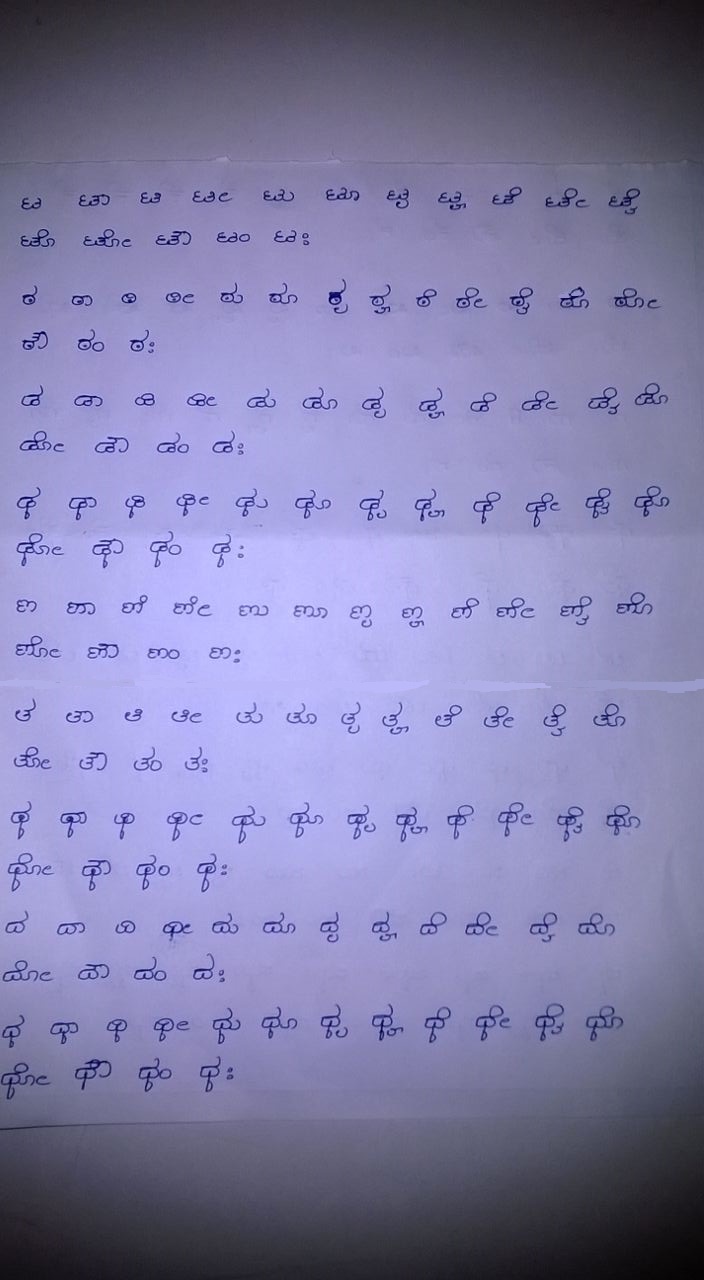 ಟ ಟಾ ಟಿ ಟೀ ಟು ಟೂ ಟೃ ಟೄ ಟೆ ಟೇ ಟೈ
ಟೊ ಟೋ ಟೌ ಟಂ ಟಃ
ಠ ಠಾ ಠಿ ಠೀ ಠು ಠೂ ಠೃ ಠೄ ಠೆ ಠೇ ಠೈ ಠೊ ಠೋ
ಠೌ ಠಂ ಠಃ
ಡ ಡಾ ಡಿ ಡೀ ಡು ಡೂ ಡೃ ಡೄ ಡೆ ಡೇ ಡೈ ಡೊ
ಡೋ ಡೌ ಡಂ ಡಃ
ಢ ಢಾ ಢಿ ಢೀ ಢು ಢೂ ಢೃ ಢೄ ಢೆ ಢೇ ಢೈ ಢೊ
ಢೋ ಢೌ ಢಂ ಢಃ
ಣ ಣಾ ಣಿ ಣೀ ಣು ಣೂ ಣೃ ಣೄ ಣೆ ಣೇ ಣೈ ಣೊ
ಣೋ ಣೌ ಣಂ ಣಃ
ತ ತಾ ತಿ ತೀ ತು ತೂ ತೃ ತೄ ತೆ ತೇ ತೈ ತೊ
ತೋ ತೌ ತಂ ತಃ
ಥ ಥಾ ಥಿ ಥೀ ಥು ಥೂ ಥೃ ಥೄ ಥೆ ಥೇ ಥೈ ಥೊ
ಥೋ ಥೌ ಥಂ ಥಃ
ದ ದಾ ದಿ ದೀ ದು ದೂ ದೃ ದೄ ದೆ ದೇ ದೈ ದೊ
ದೋ ದೌ ದಂ ದಃ
ಧ ಧಾ ಧಿ ಧೀ ಧು ಧೂ ಧೃ ಧೄ ಧೆ ಧೇ ಧೈ ಧೊ
ಧೋ ಧೌ ಧಂ ಧಃ